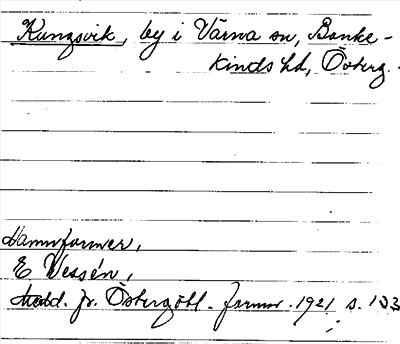 Kungsvik, by i Värna sn, Banke-
kinds hd, Österg.
Namnformer,
E Wessén,
Medd. fr. Östergötl. fornm. 1921 s. 133